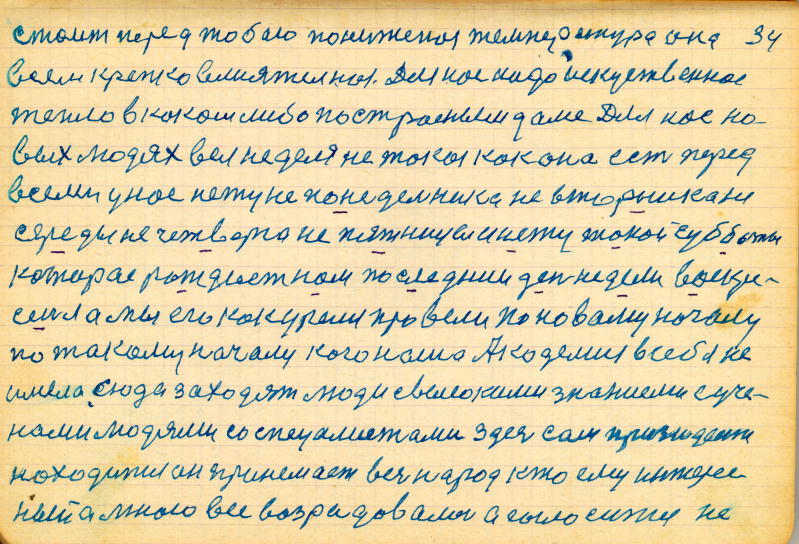 стоит перед тобою пониженоя температура она 34
всем крепковлиятелноя. Для нос надо искуственное
тепло в кокомлибо построенымдаме Для нос но-
вых людях вся неделя не токоя кок она есть перед
всеми у нос нету не понеделника не вторьника ни
середы не четверга не пятници и нету токой субботы
которае рождает нам последний ден недели воскри-
сеня а мы его кок урели провели поновамуночалу
по такому началу кого наша Академия в себя не
имела сюда заходят люди свысокими знанием суче-
номи людями со спецалистами здес сам призидент
находится он принемает вес народ кто ему интерес
ный а мною все возрадовалос а сыло сижу не